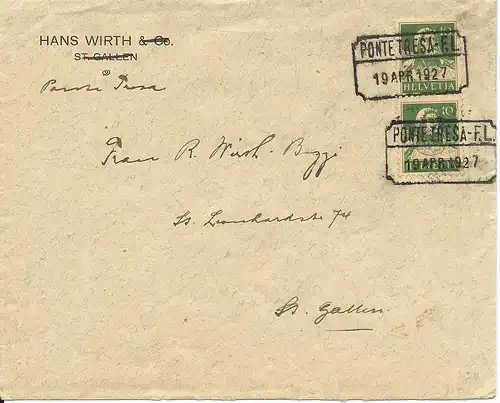 HANS WIRTH & Co.
ST. GALLEN
Ponte Tresa
10
PONTE TRESA-F.L.
19 APR 1927
HELVETIA
10
PONTE TRESA-F.L.
19 APR 1927
Frau R. Wirth-Beggi
St. Leonhardstr 74
St. Gallen.